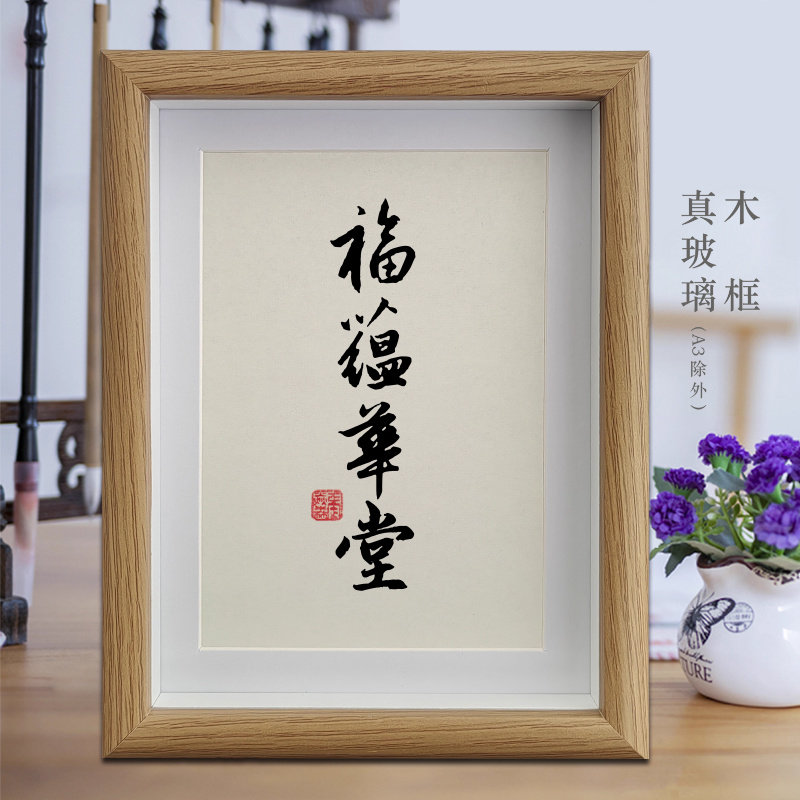 福蘊華堂
木框
真玻璃
(A3除外)
TURE